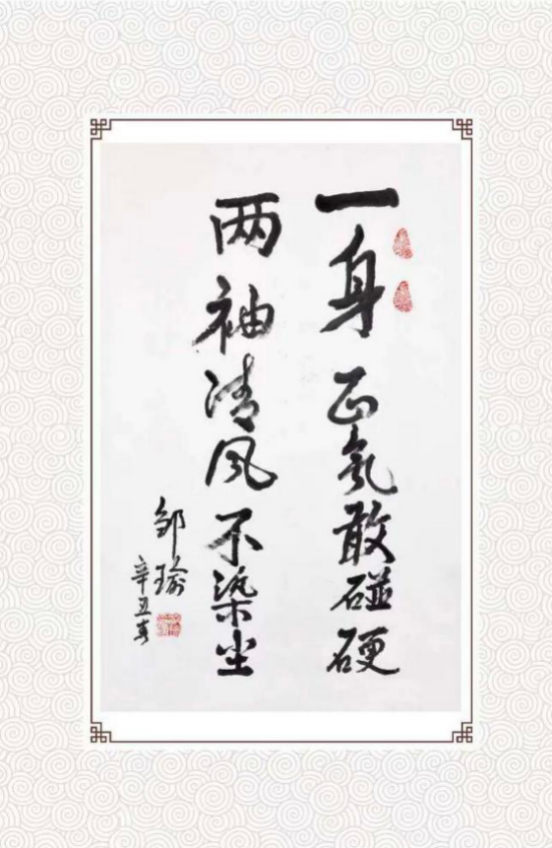 一身正氣敢碰硬
两袖清风不染尘
邹瑜
辛丑春